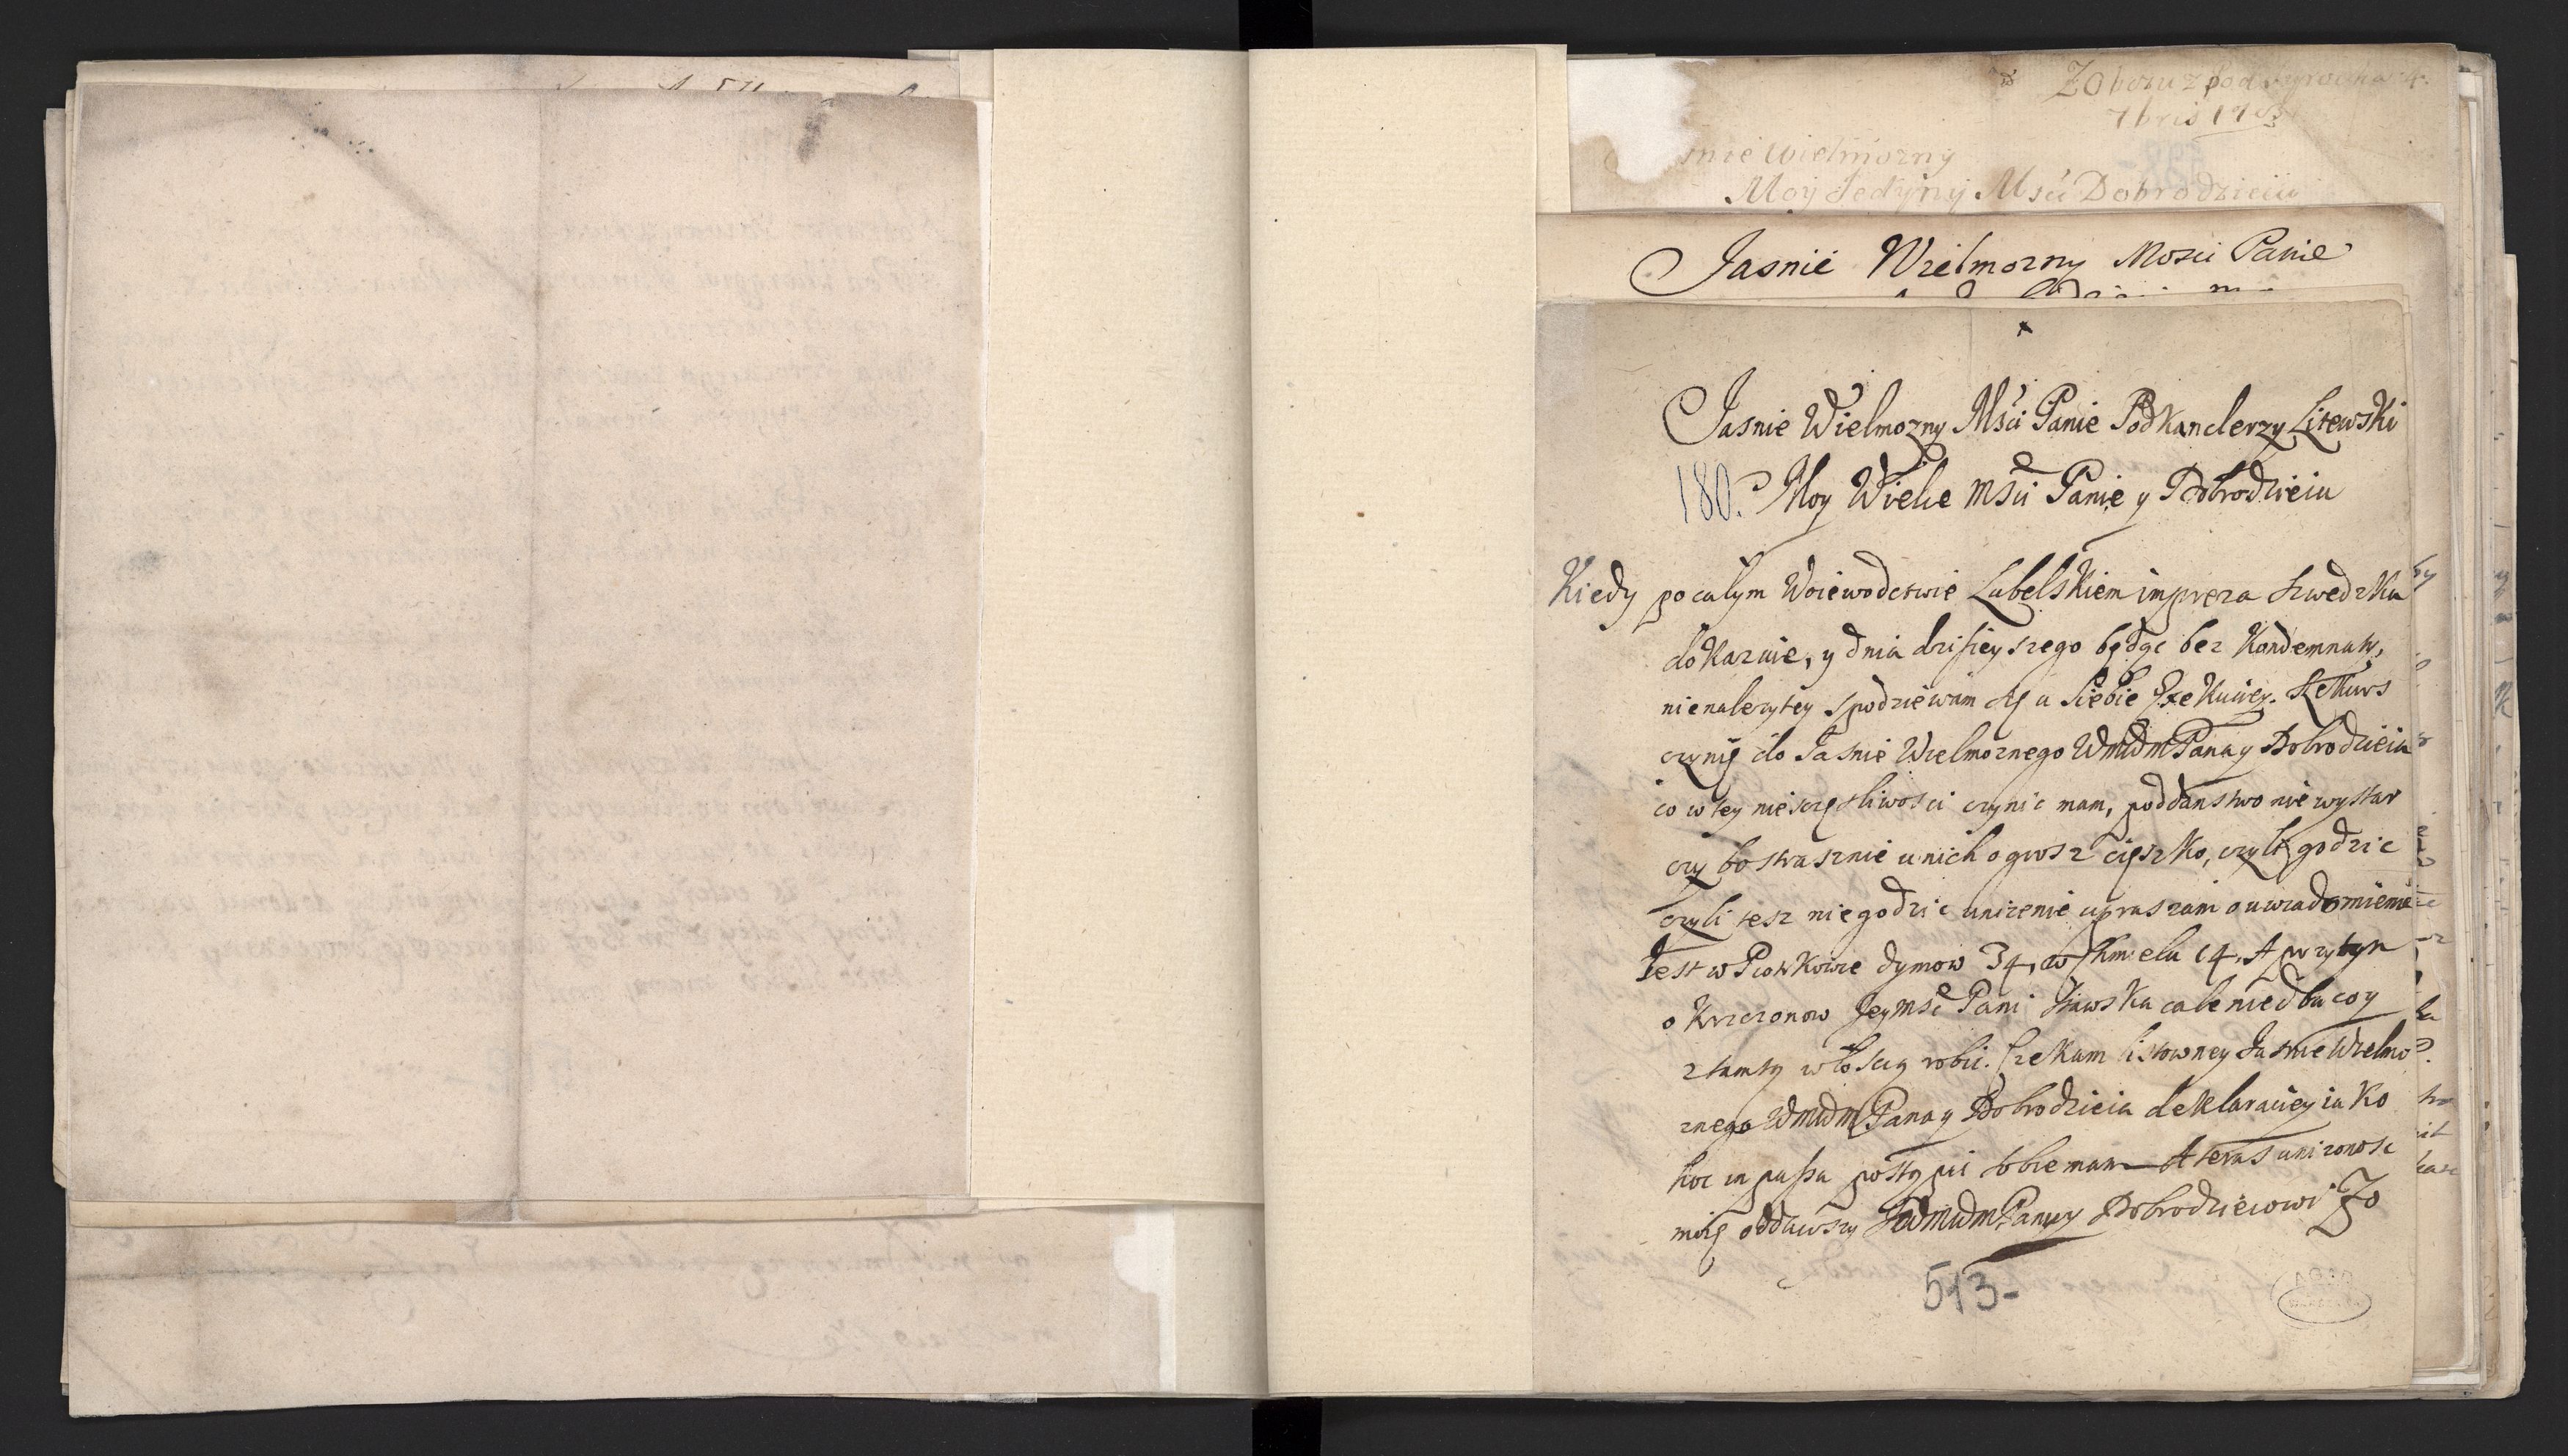 Zobozu z pod
7bris 170
snie Wielmozny
Moy Jedyny Msci Dobrodzieiu
Jasnie Wielmozny Mosci Panie
Jasnie Wielmozny Msci Panie Podkanclerzy Litewski
180. Moy Wielce Msci Panie y Dobrodzieiu
Kiedy po calym Woiewodztwie Lubelskiem impreza szwedzka
dokazuie, y dnia dzisieyszego będąc bez Kondemnaty,
nienalezytey spodziewam się u siebie Exekuciey. Rekurs
czynię do Jasnie Wielmoznego WmMmPana y Dobrodzieia
co w tey niesczęsliwosci czynic mam, poddanstwo nie wystar
czy bo strasznie u nich o grosz cięszko, czyli godzic
czyli tesz niegodzic unizenie upraszam o uwiadomienie
Jest w Piotrkowie dymow 34, w Chmielu 14. A przytym
o Krzczonow Jeymsc Pani cale niedba co y
z tamtą włoscią robic. Czekam listowney Jasnie Wielmo
znego WmMmPana y Dobrodzieia deklaraciey iako
hoc in passu postąpic sobie mam A teras unizonosc
moię oddawszy WmMmPanu y Dobrodzieiowi Zo
513-